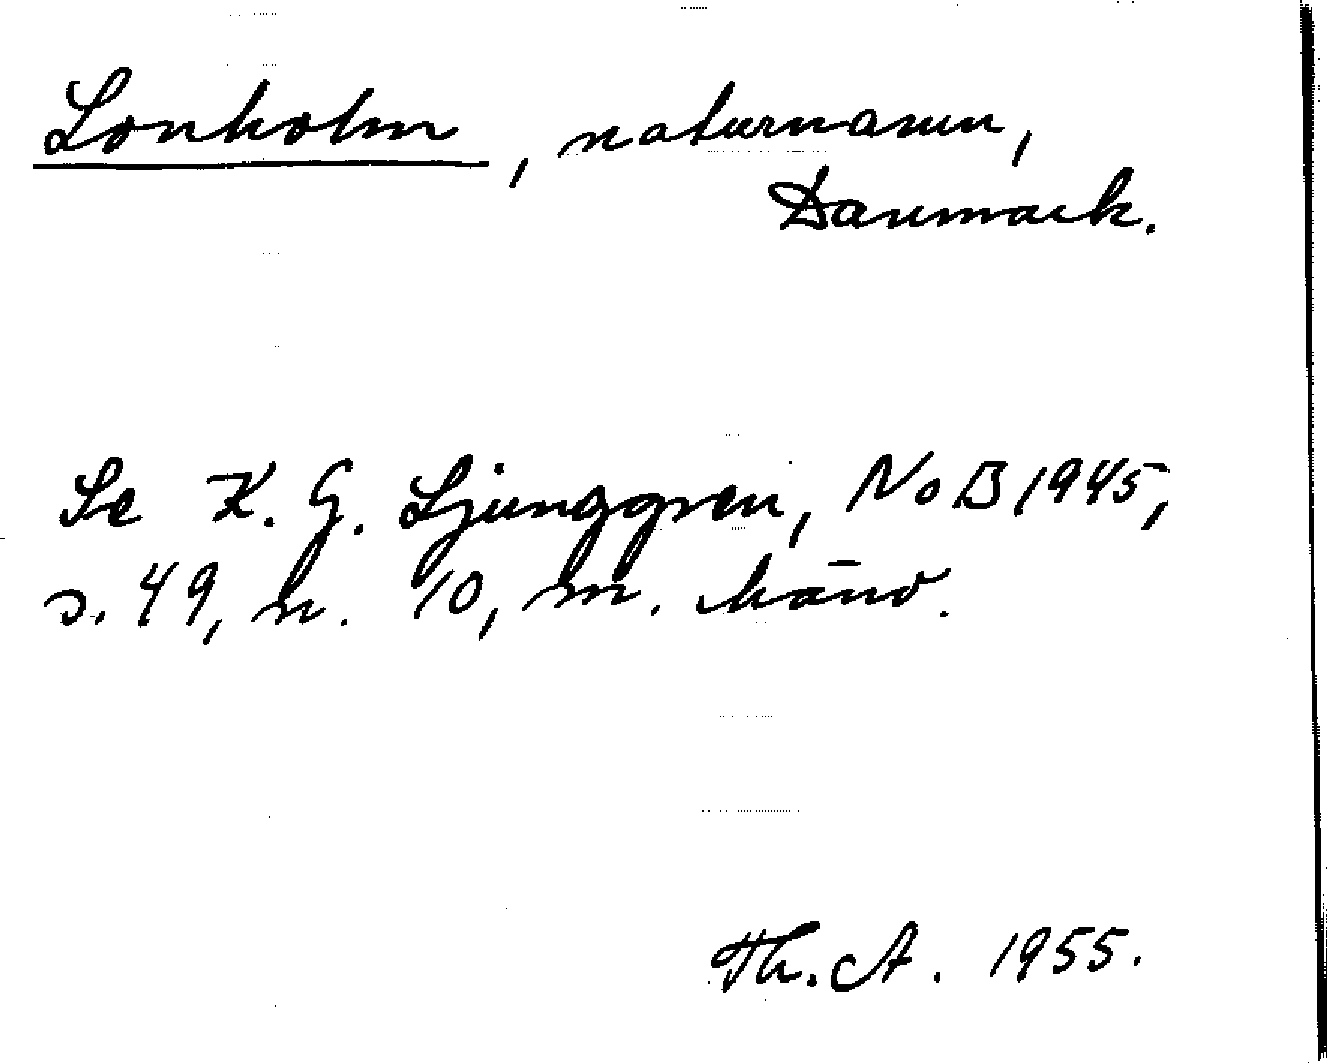 Lonholm, naturnamn,
Danmark.
Se K. G. Ljunggren, NoB 1945,
s. 49, n. 10, m. hänv.
Th. A. 1955.